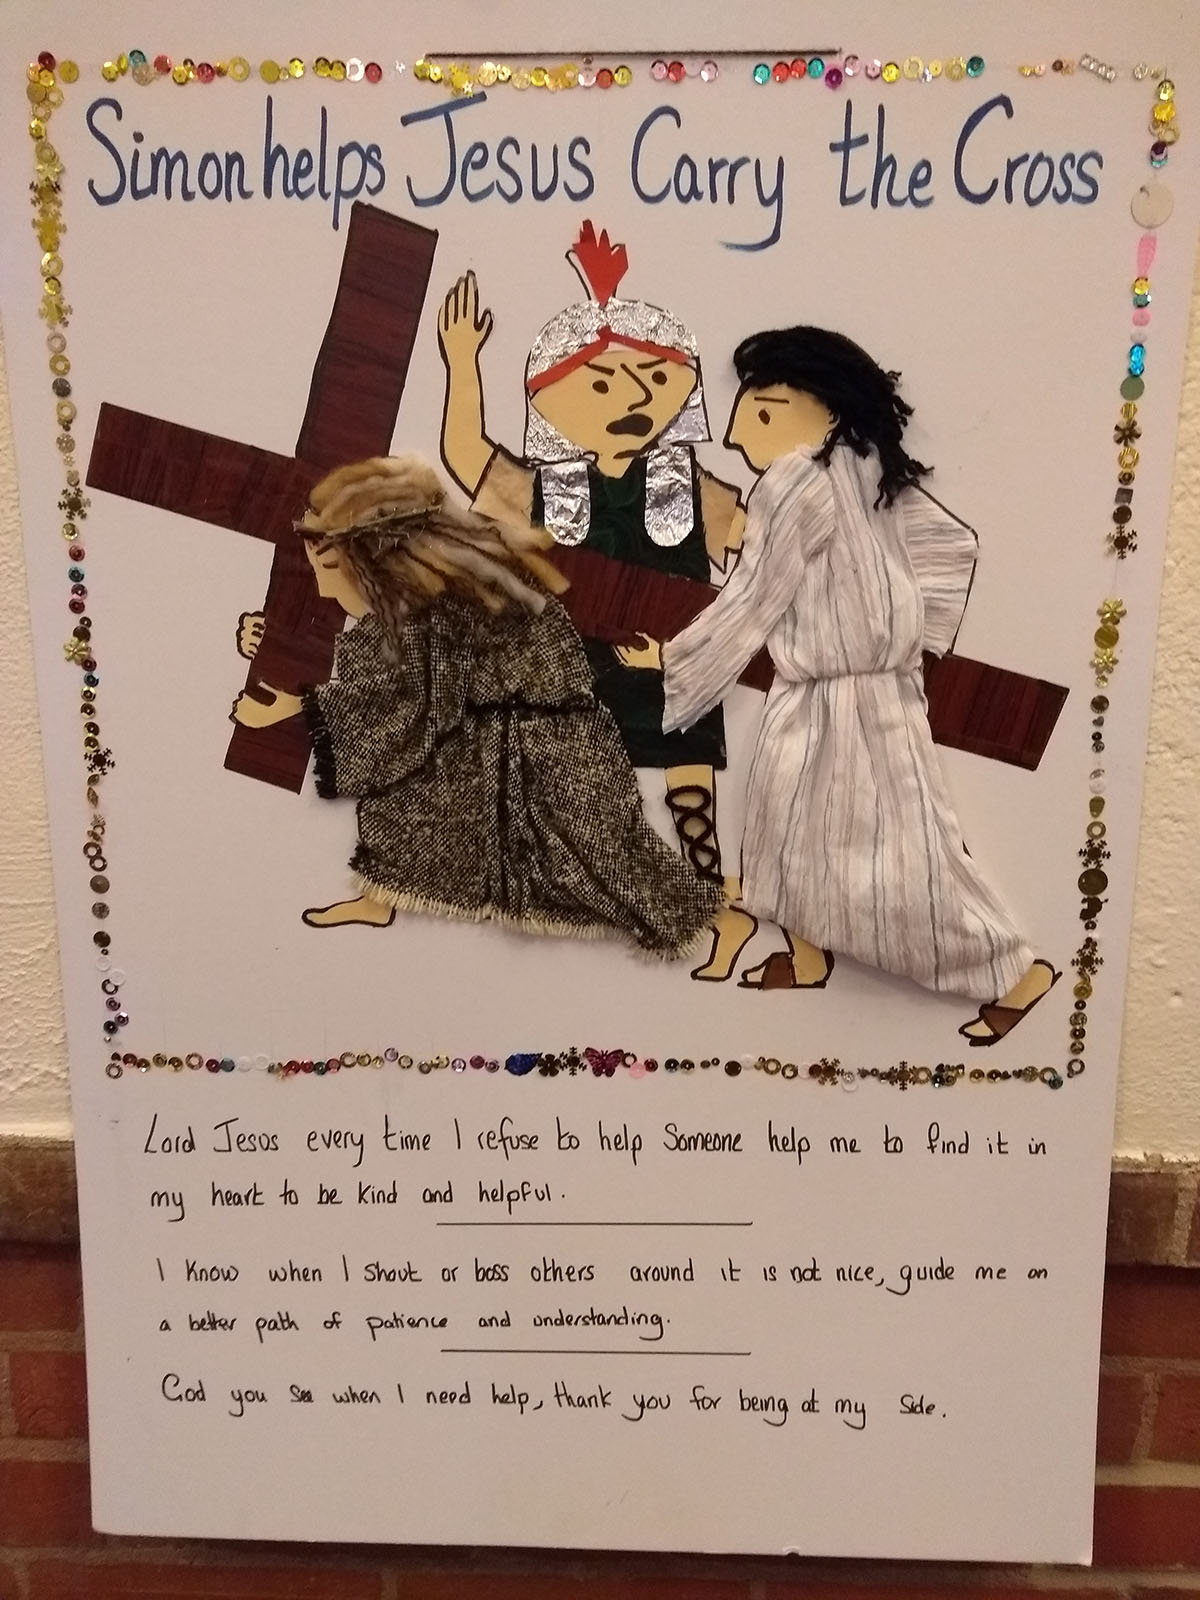 Simon helps Jesus Carry the Cross
Lord Jesus every time I refuse to help Someone help me to find it in
my heart to be kind and helpful.
I know when I shout or boss others around it is not nice, guide me on
a better path of patience and understanding.
God you see when I need help, thank you for being at my side.